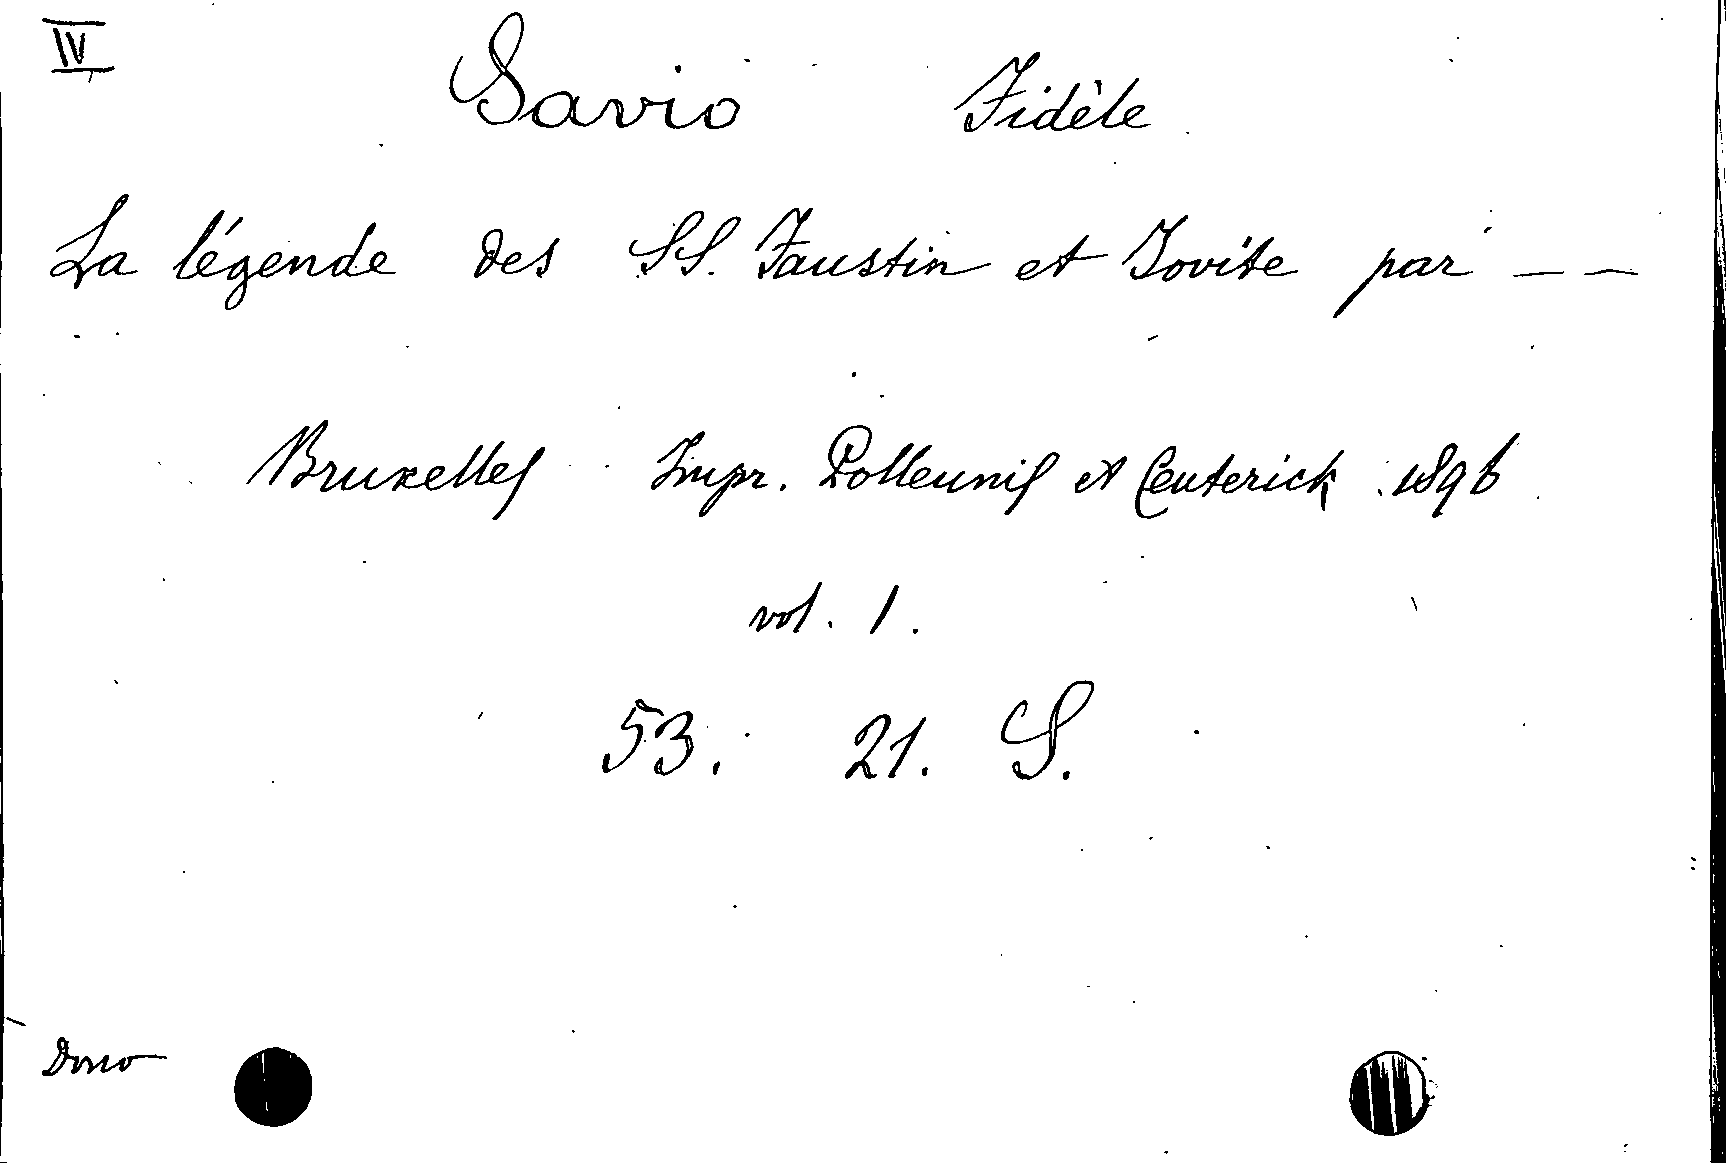 IV
Savio Fidèle
La légende des SS. Faustin et Jovite par — —
Bruxelles Impr. Polleunis et Ceuterick 1896
vol. 1.
53. 21. S.
Dono